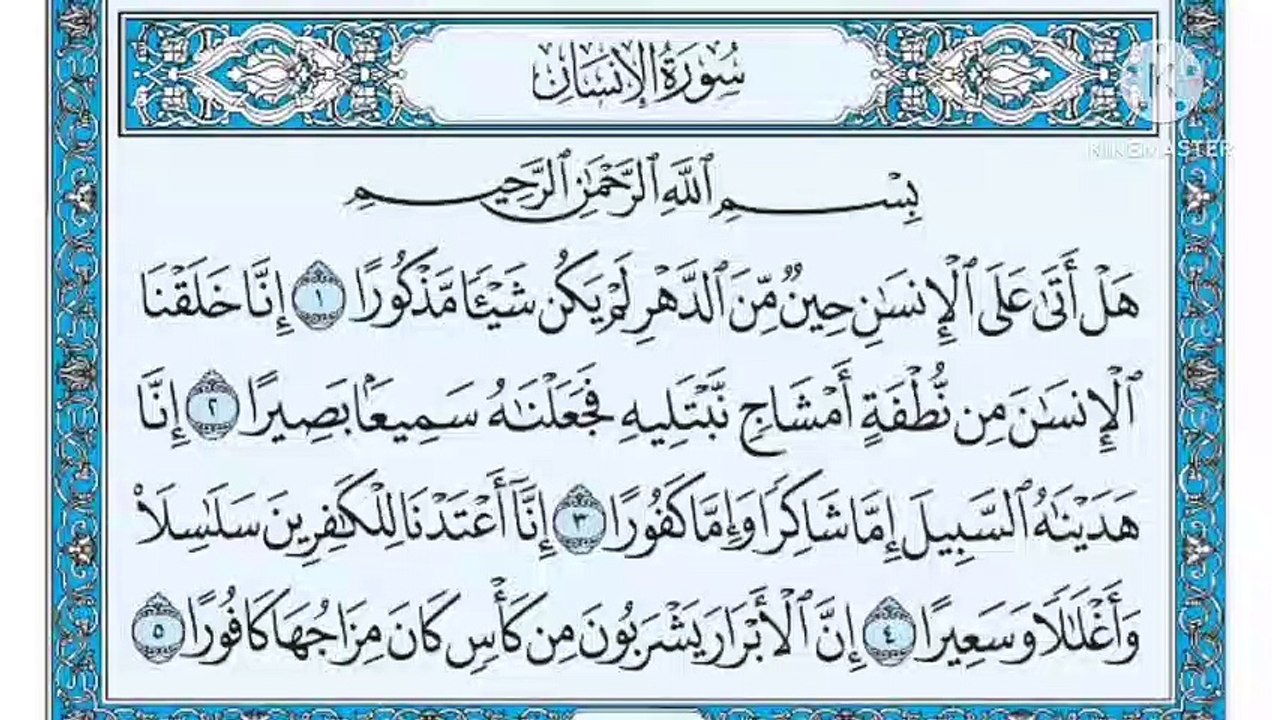 سُورَةُ الإِنسَانِ
KINEMASTER
بِسْمِ ٱللَّهِ ٱلرَّحْمَٰنِ ٱلرَّحِيمِ
هَلْ أَتَىٰ عَلَى ٱلْإِنسَٰنِ حِينٌ مِّنَ ٱلدَّهْرِ لَمْ يَكُن شَيْـًٔا مَّذْكُورًا ١ إِنَّا خَلَقْنَا
ٱلْإِنسَٰنَ مِن نُّطْفَةٍ أَمْشَاجٍ نَّبْتَلِيهِ فَجَعَلْنَٰهُ سَمِيعًۢا بَصِيرًا ٢ إِنَّا
هَدَيْنَٰهُ ٱلسَّبِيلَ إِمَّا شَاكِرًا وَإِمَّا كَفُورًا ٣ إِنَّآ أَعْتَدْنَا لِلْكَٰفِرِينَ سَلَٰسِلَا۟
وَأَغْلَٰلًا وَسَعِيرًا ٤ إِنَّ ٱلْأَبْرَارَ يَشْرَبُونَ مِن كَأْسٍ كَانَ مِزَاجُهَا كَافُورًا ٥